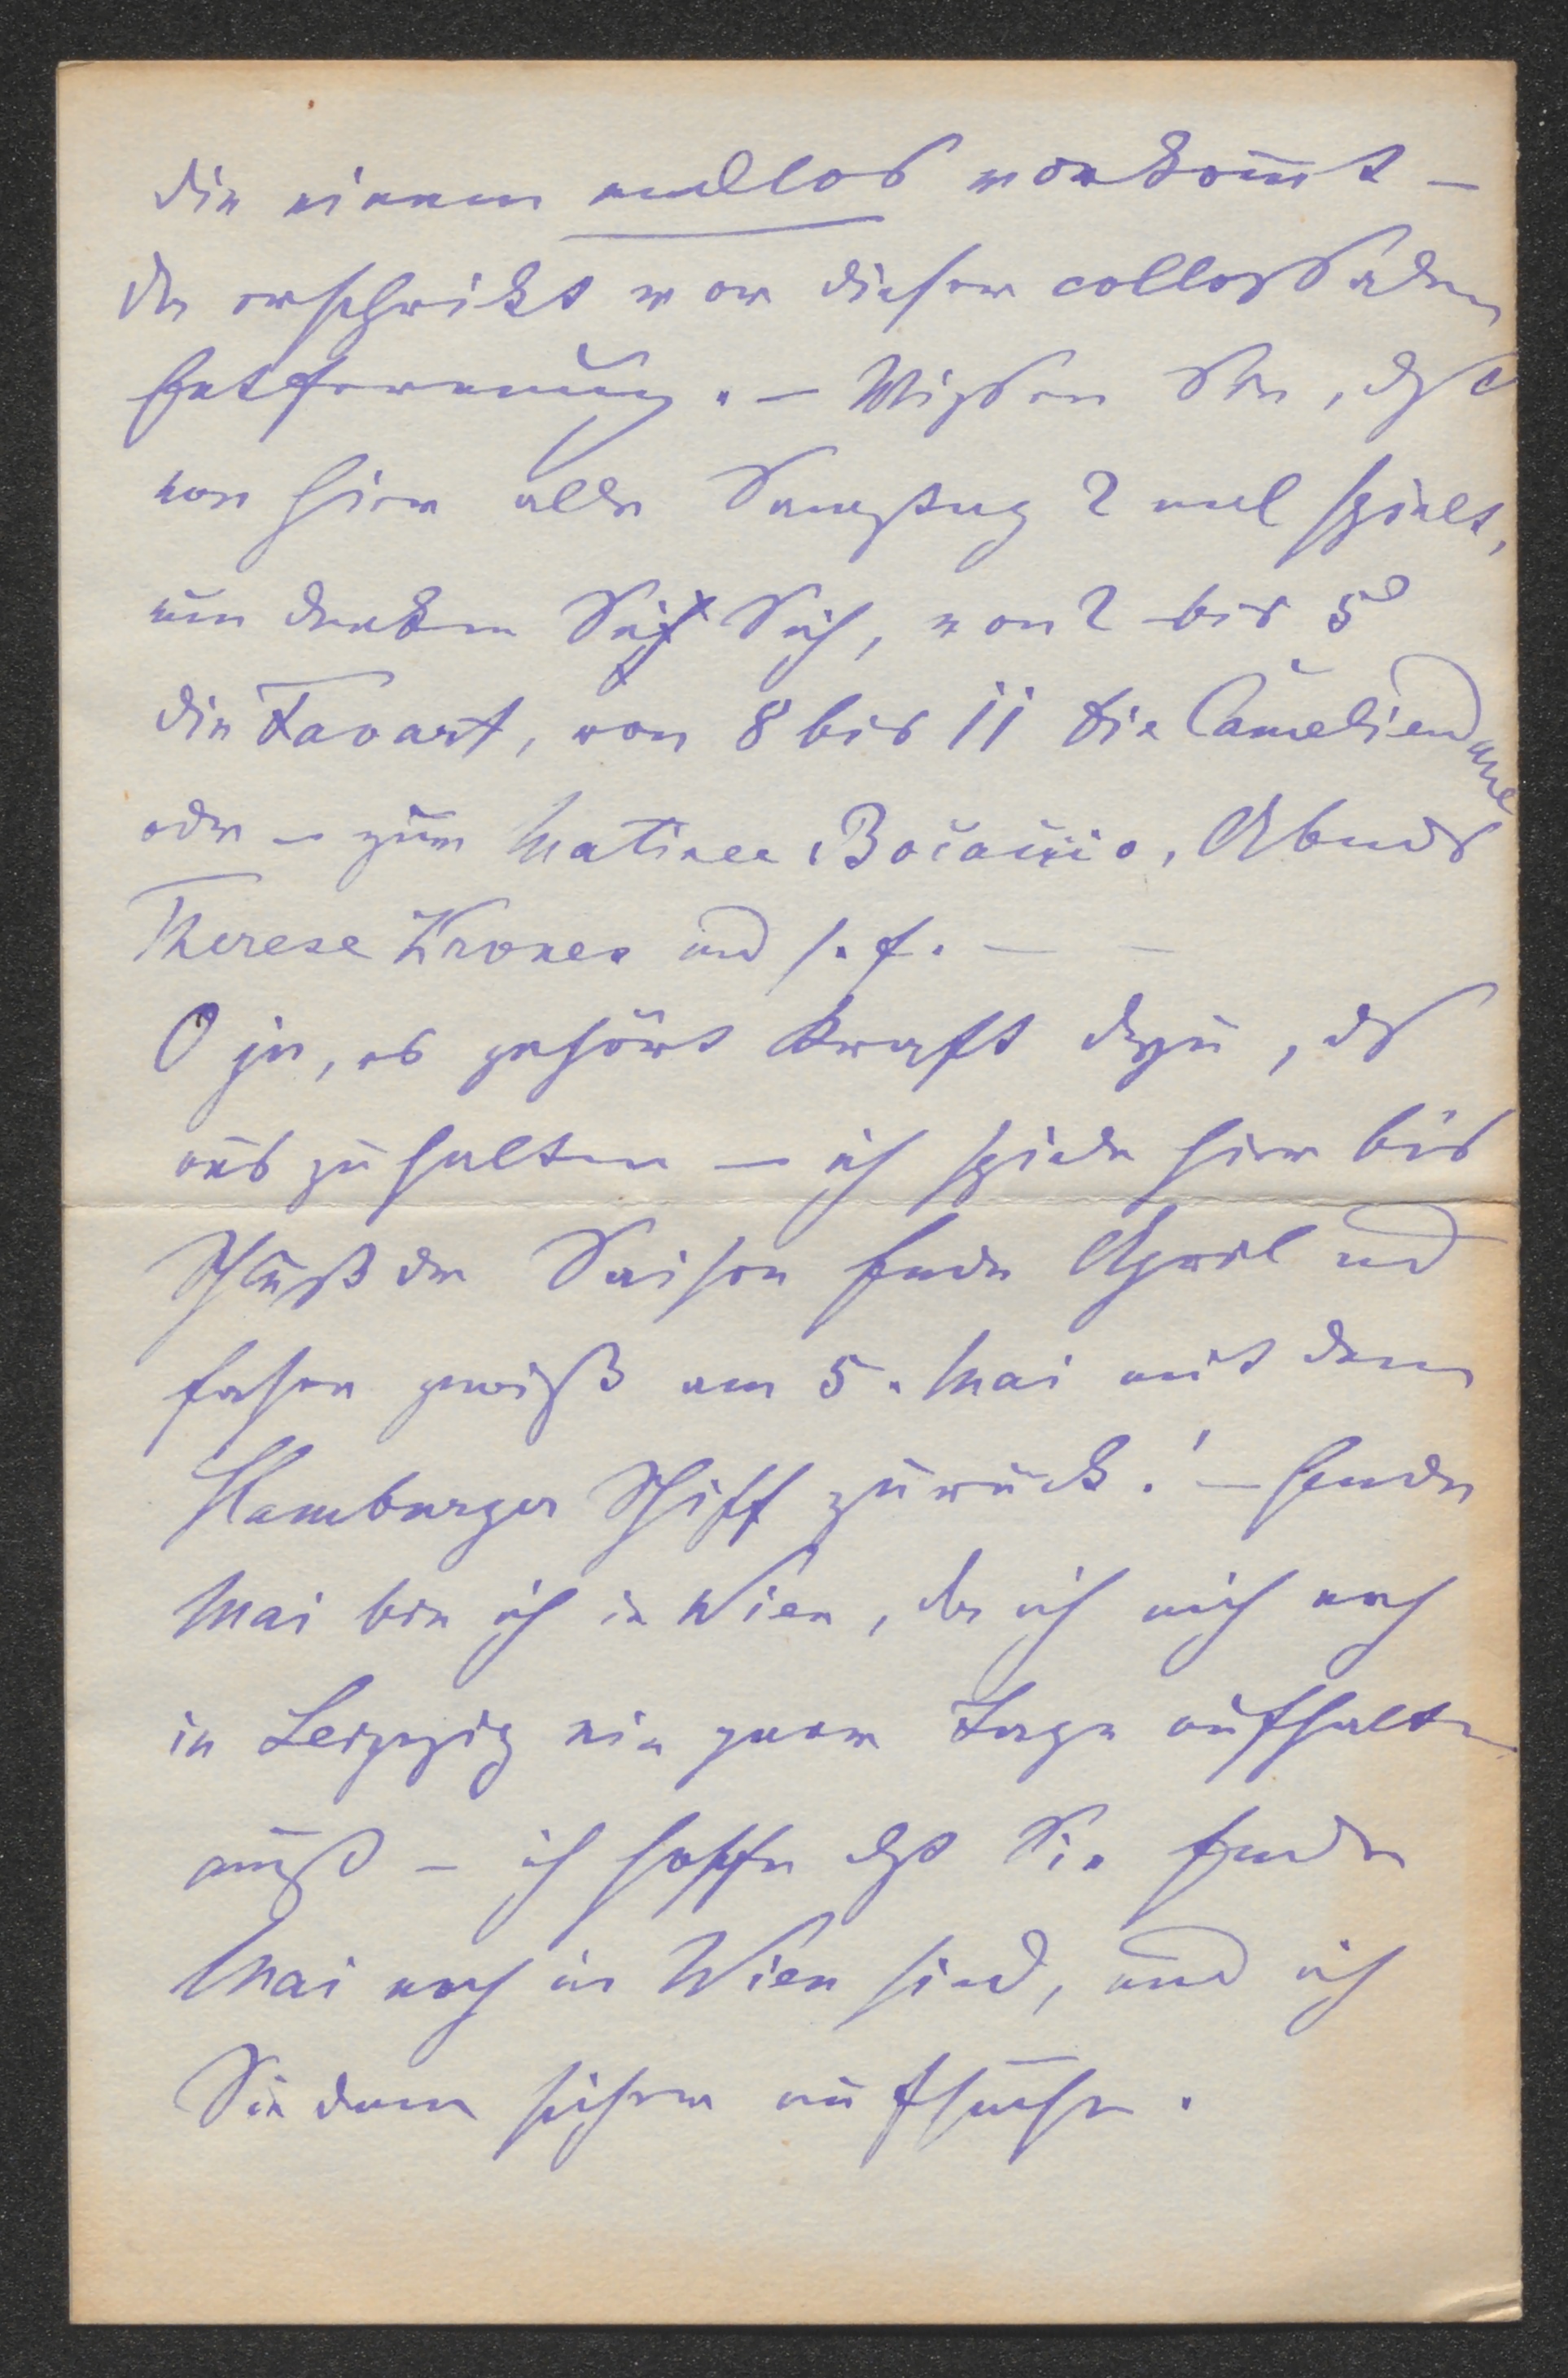 die einem endlos vorkom̄t —
da erschrikt vor dieser collossalen
Entfernung. — Wissen Sie, dß
man hier alle Samstag 2 mal spielt,
nun denken Sich, von 2 bis 5
die Favart, von 8 bis 11 die Cameliendame
oder — zum Matinee Bocaccio, Abends
Therese Krones und s. f. — —
O ja, es gehört Kraft dazu, das
auszuhalten — ich spiele hier bis
Schluß der Saison Ende April und
fahre gewiß am 5. Mai mit dem
Hamburger Schiff zurück! — Ende
Mai bin ich in Wien, da ich mich noch
in Leipzig ein paar Tage aufhalten
muß — ich hoffe dß Sie Ende
Mai noch in Wien sind, und ich
Sie dann sicher aufsuche.